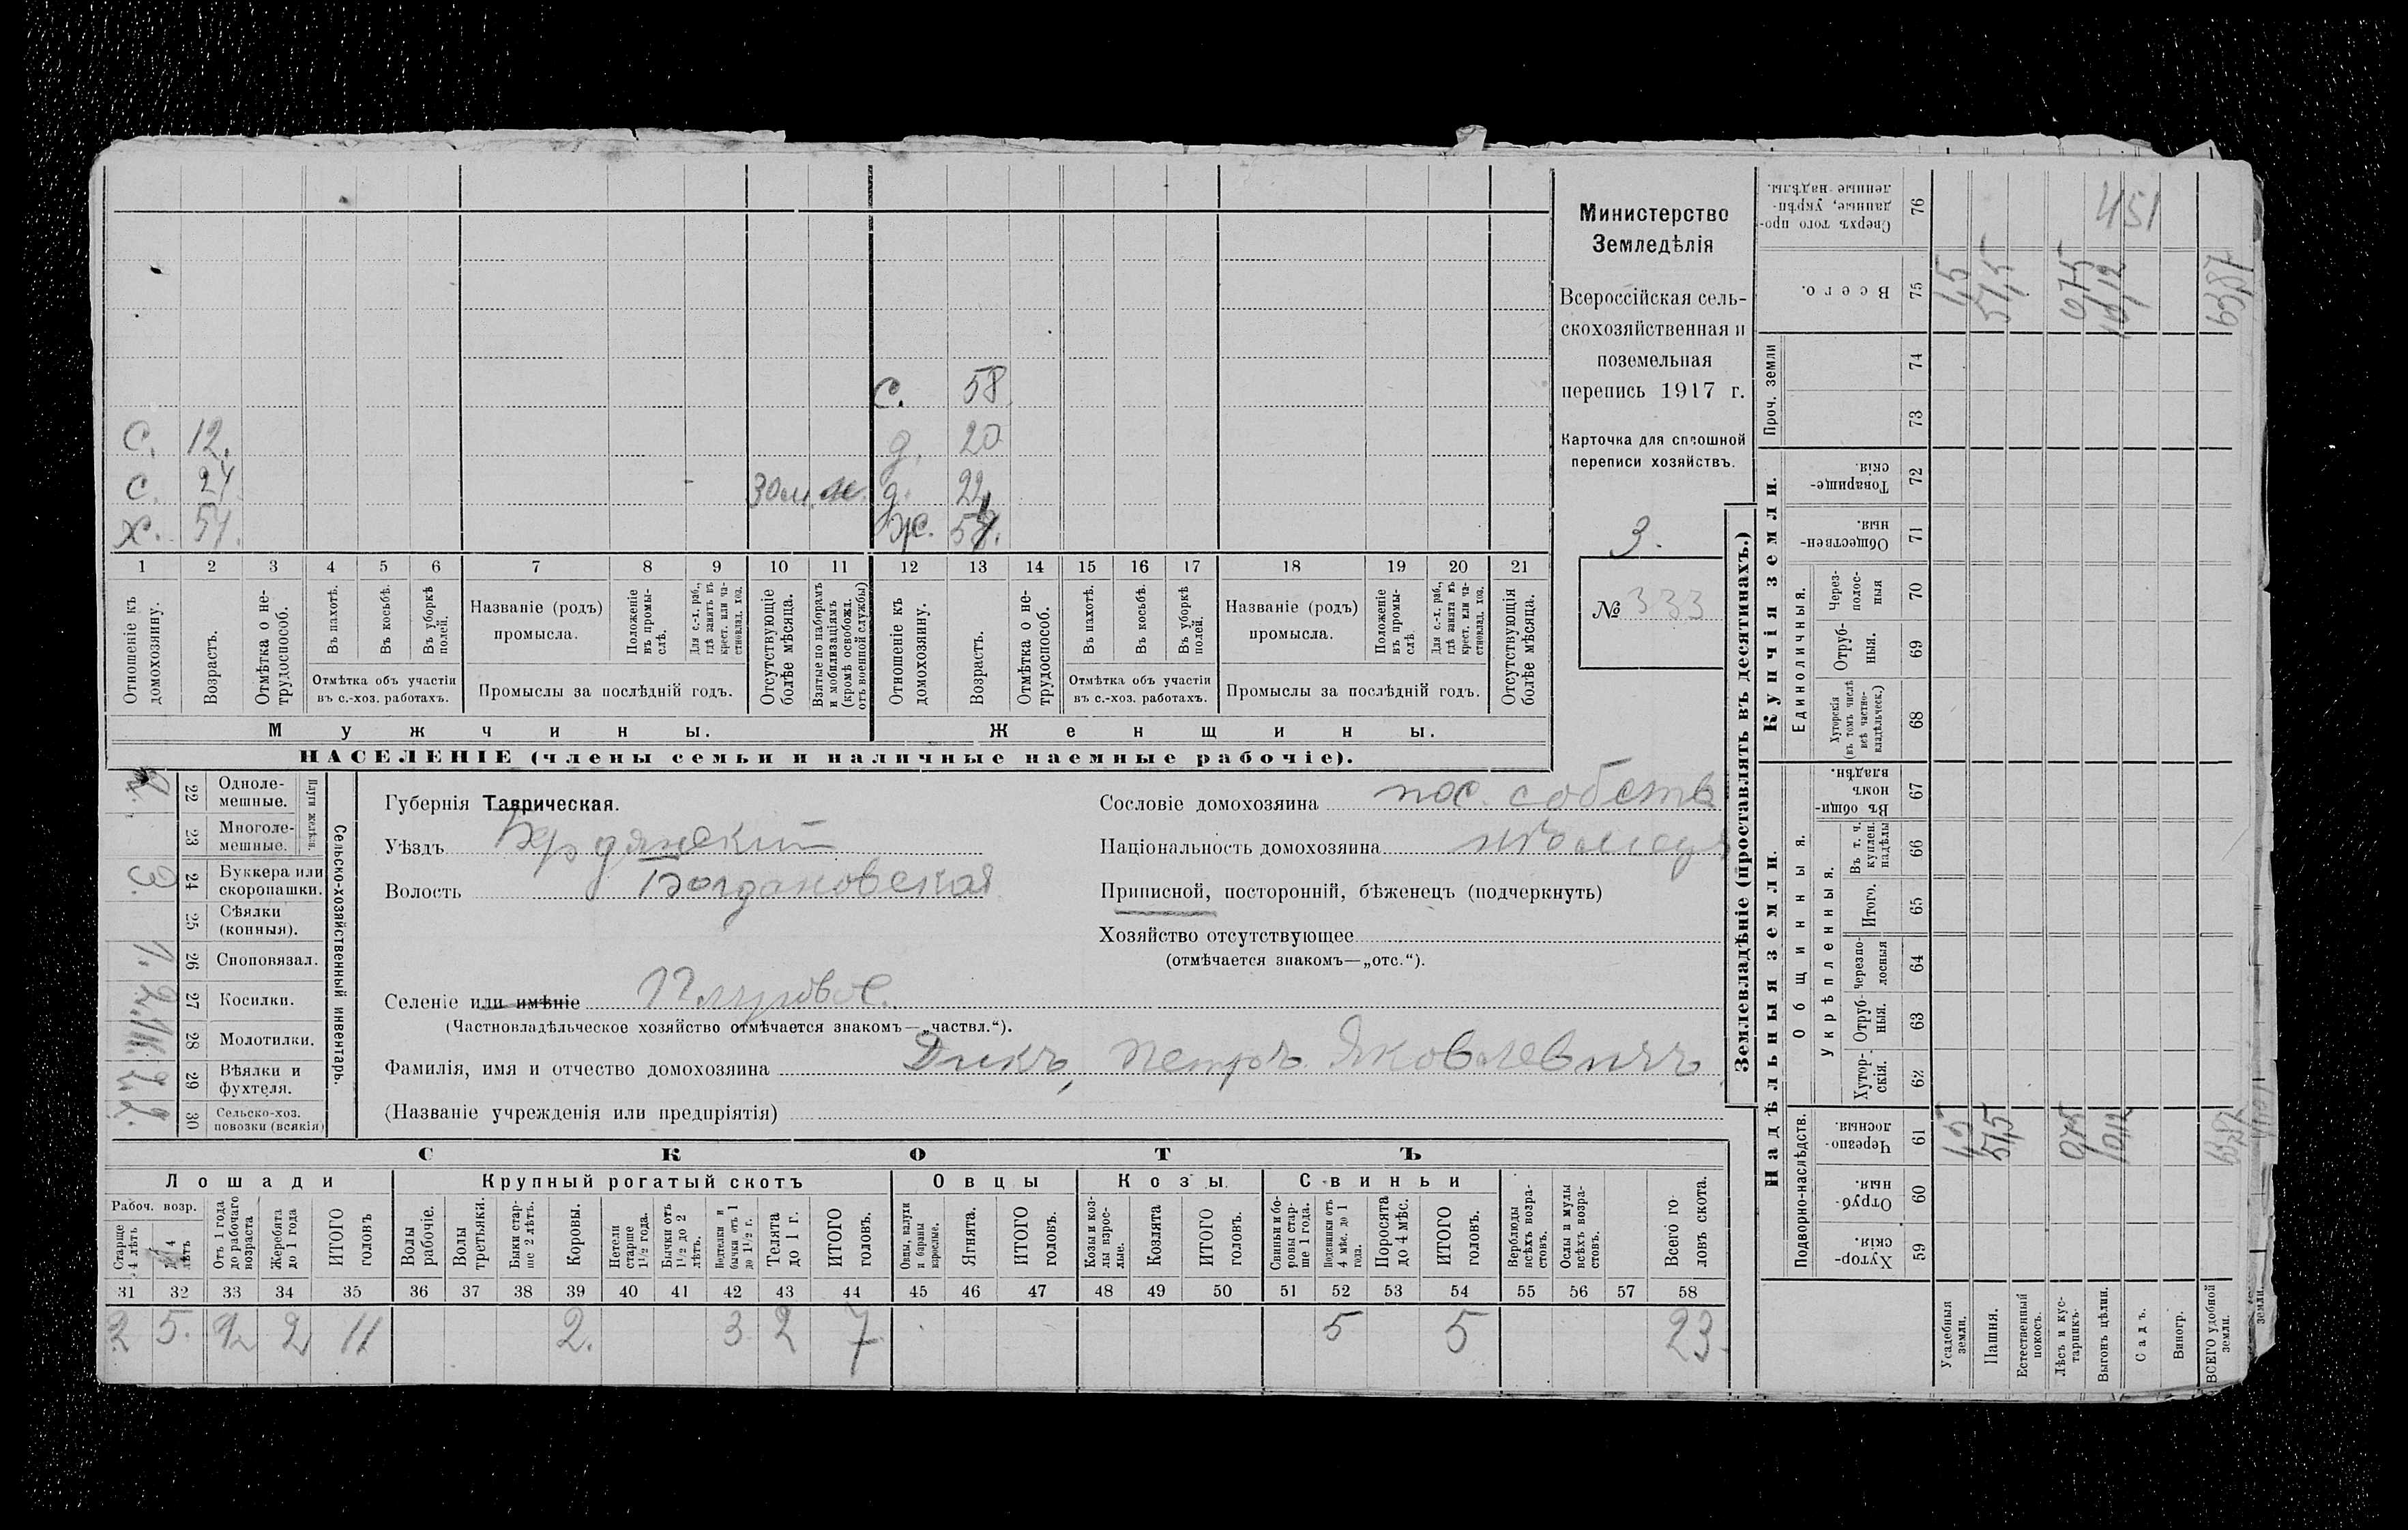 С. 58
С. 12. д. 20
С. 24 30 м. д. 22
Х. 54. Ж.
1 2 3 4 5 6 7 8 9 10 11 12 13 14 15 16 17 18 19 20 21
Отношеніе къ домохозяину.
Возрастъ.
Отмѣтка о не-трудоспособ.
Въ пахотѣ.
Въ косьбѣ.
Въ уборкѣ полей.
Отмѣтка объ участіи
въ с.-хоз. работахъ.
Названіе (родъ)
промысла.
Положеніе въ промы-слѣ.
Для с.-х. раб., гдѣ занятъ въ крест. или ча-стновлад. хоз.
Промыслы за послѣдній годъ.
Отсутствующіе болѣе мѣсяца.
Взятые по наборамъ и мобилизаціямъ (кромѣ освобожд. отъ военной службы)
Отношеніе къ домохозяину.
Возрастъ.
Отмѣтка о не-трудоспособ.
Въ пахотѣ.
Въ косьбѣ.
Въ уборкѣ полей.
Отмѣтка объ участіи
въ с.-хоз. работахъ.
Названіе (родъ)
промысла.
Положеніе въ промы-слѣ.
Для с.-х. раб., гдѣ занята въ крест. или ча-стновлад. хоз.
Промыслы за послѣдній годъ.
Отсутствующія болѣе мѣсяца.
Мужчины. Женщины.
НАСЕЛЕНІЕ (члены семьи и наличные наемные рабочіе).
Министерство
Земледѣлія
Всероссійская сель-
скохозяйственная и
поземельная
перепись 1917 г.
Карточка для сплошной
переписи хозяйствъ.
3.
№ 333
22 Одноле-мешные.
23 Многоле-мешные.
Плуги желѣзн.
3. 24 Буккера или скоропашки.
25 Сѣялки (конныя).
1. 26 Сноповязал.
27 Косилки.
28 Молотилки.
2. 29 Вѣялки и фухтеля.
2. 30 Сельско-хоз. повозки (всякія)
Сельско-хозяйственный инвентарь.
Губернія Таврическая.
Уѣздъ Бердянскій
Волость Богдановская
Сословіе домохозяина пос. собств
Національность домохозяина нѣмец
Приписной, посторонній, бѣженецъ (подчеркнуть)
Хозяйство отсутствующее
(отмѣчается знакомъ—„отс.“).
Селеніе или имѣніе
(Частновладѣльческое хозяйство отмѣчается знакомъ—„частвл.“).
Фамилія, имя и отчество домохозяина Дикъ, Петръ Яковлевичъ
(Названіе учрежденія или предпріятія)
СКОТЪ
Лошади Крупный рогатый скотъ Овцы Козы Свиньи
Рабоч. возр.
Старше 4 лѣтъ
4 лѣтъ
Отъ 1 года до рабочаго возраста
Жеребята до 1 года
ИТОГО головъ
Волы рабочіе.
Волы третьяки.
Быки стар-ше 2 лѣтъ.
Коровы.
Нетели старше 1½ года.
Бычки отъ 1½ до 2 лѣтъ.
Подтелки и бычки отъ 1 до 1½ г.
Телята до 1 г.
ИТОГО головъ.
Овцы, валухи и бараны взрослые.
Ягнята.
ИТОГО головъ.
Козы и коз-лы взрос-лые.
Козлята
ИТОГО головъ.
Свиньи и бо-ровы стар-ше 1 года.
Подсвинки отъ 4 мѣс. до 1 года.
Поросята до 4 мѣс.
ИТОГО головъ.
Верблюды всѣхъ возра-стовъ.
Ослы и мулы всѣхъ возра-стовъ.
Всего го-ловъ скота.
31 32 33 34 35 36 37 38 39 40 41 42 43 44 45 46 47 48 49 50 51 52 53 54 55 56 57 58
2 5. 2 2 11 2. 3 2 7 5 5 23
Землевладѣніе (проставлять въ десятинахъ.)
Надѣльныя земли. Купчія земли.
Подворно-наслѣдств. Общинныя. Единоличныя. Проч. земли
Укрѣпленныя.
Хутор-скія. 59
Отруб-ныя. 60
Черезпо-лосныя. 61
Хутор-скія. 62
Отруб-ныя. 63
Черезпо-лосныя 64
Итого. 65
Въ т. ч. куплен. надѣлы 66
Въ общин-номъ владѣн. 67
Хуторскія (въ томъ числѣ всѣ частно-владѣльческ.) 68
Отруб-ныя. 69
Через-полос-ныя 70
Обществен-ныя. 71
Товарище-скія. 72
73
74
Всего. 75
Сверхъ того про-данные, укрѣп-ленные надѣлы. 76
Усадебныя земли. 1,5 1,5
Пашня. 51,5 51,5
Естественный покосъ.
Лѣсъ и кус-тарникъ. 0,75 0,75
Выгонъ цѣлин. 10,12 10,12 451
Садъ.
Виногр.
ВСЕГО удобной земли. 63,87 63,87
земли.